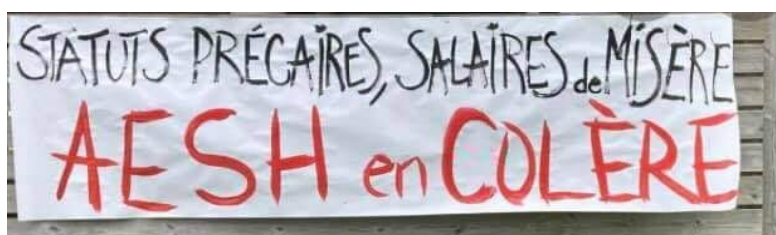 STATUTS PRÉCAÏRES, SALAÏRES de MİSÈRE
AESH en COLÈRE